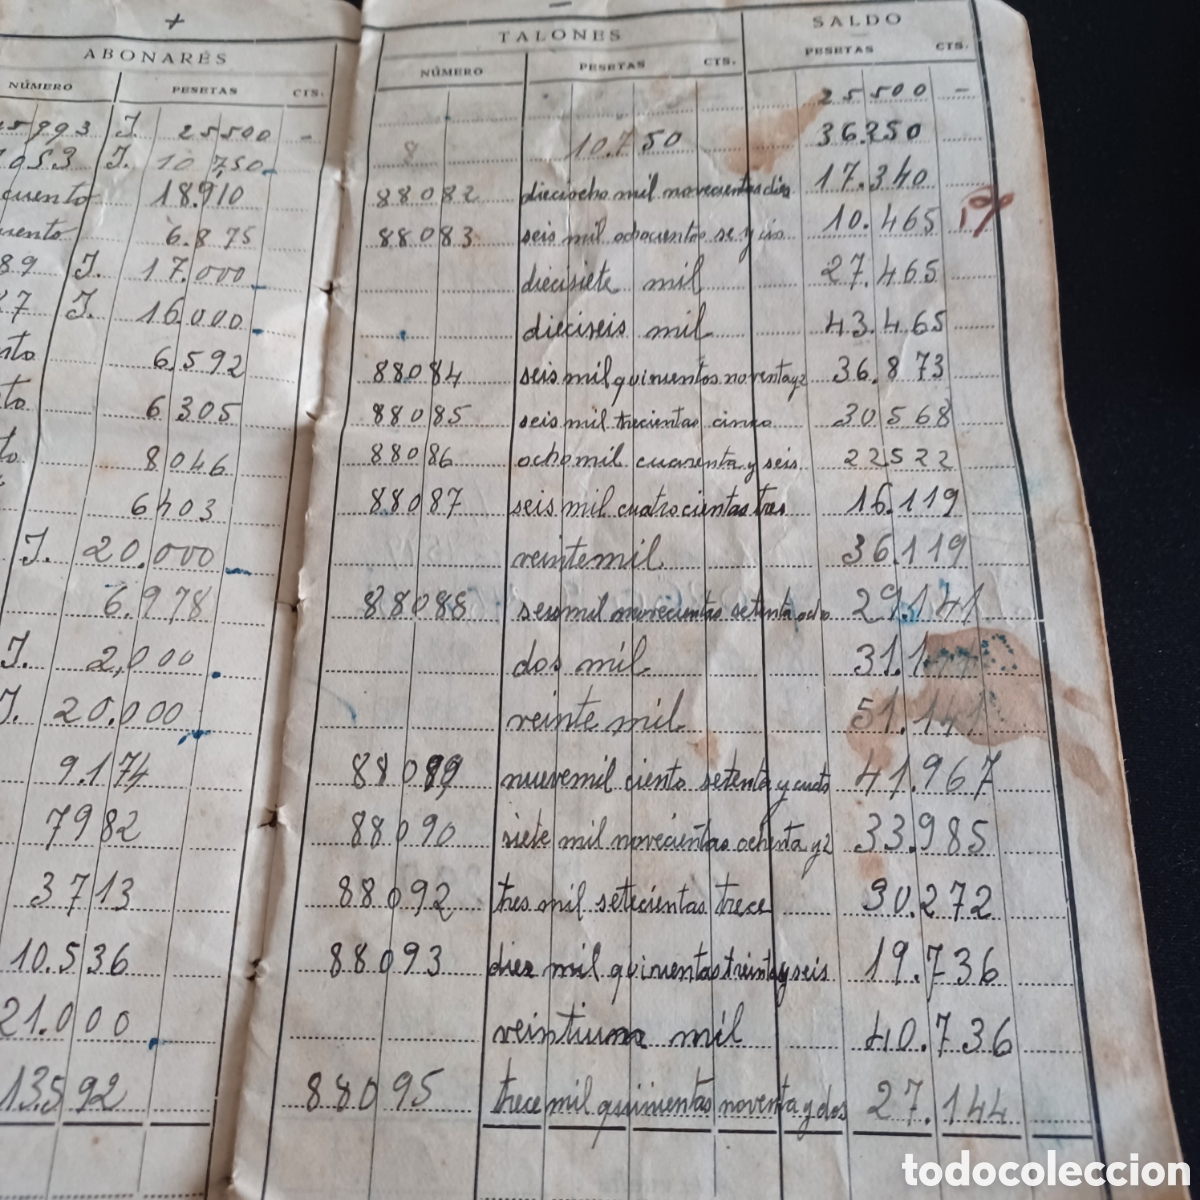 + −
ABONARÉS TALONES SALDO
NÚMERO PESETAS CTS. NÚMERO PESETAS CTS. PESETAS CTS.
25500 –
25893 J. 25500 – 8 10.750 36.250
1053 J. 10,750. 88082 dieciocho mil novecientos diez 17.340
cuento 18.910 88083 seis mil ochocientos se y cin 10.465
uento 6.875 diecisiete mil 27.465
89 J. 17.000 dieciseis mil 43.465
27 J. 16.000 88084 seis mil quinientos noventa y 2 36.873
nto 6.592 88085 seis mil trecientas cinco 30568
to 6305 88086 ocho mil cuarenta y seis 22522
to 8046 88087 seis mil cuatrocientas tres 16.119
6403 veinte mil 36.119
J. 20.000 88088 seis mil novecientas setenta ocho 29.141
6.978 dos mil 31.1
J. 2,000 veinte mil 51.141
J. 20.000 88089 nueve mil ciento setenta y cuato 41.967
9.174 88090 siete mil novecientas ochenta y 2 33.985
7982 88092 tres mil setecientas trece 30.272
3713 88093 diez mil quinientas treinta y seis 19.736
10.536 veintiun mil 40.736
21.000 88095 trece mil quinientas noventa y dos 27.144
13592
todocoleccion